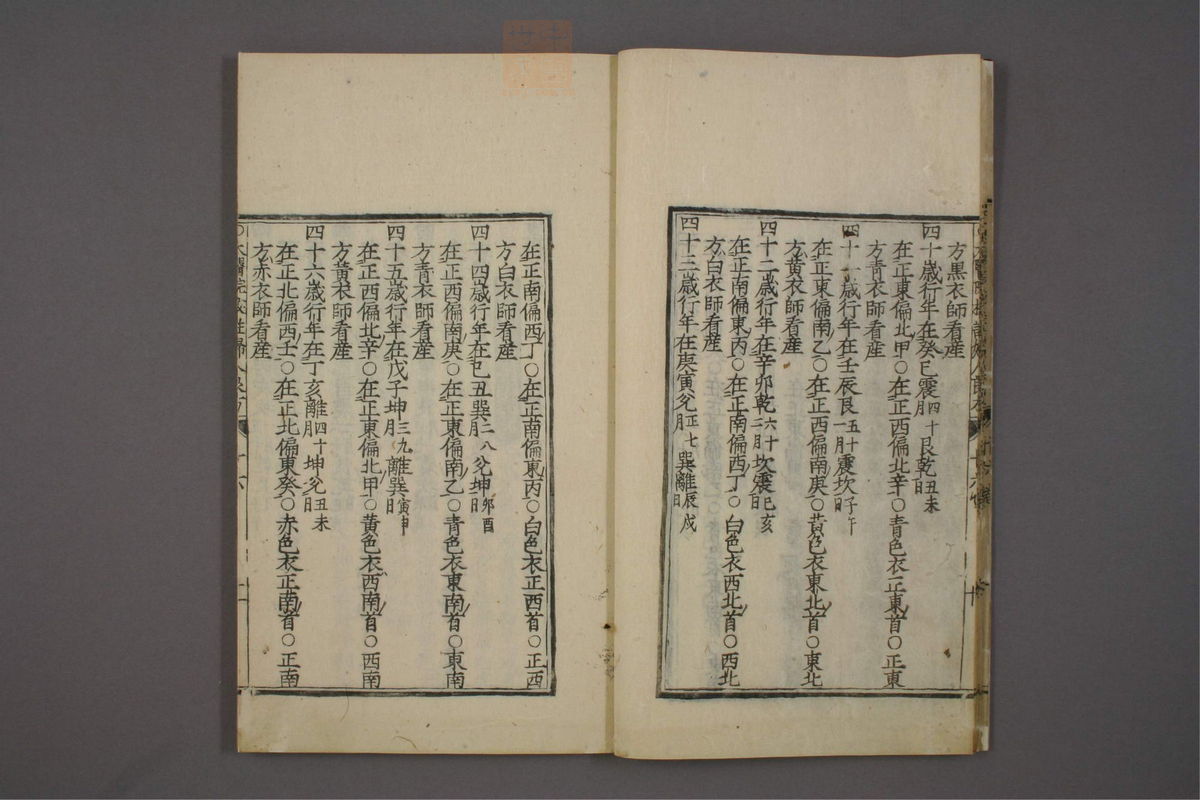 方黑衣師看産
四十歲行年在癸巳震四十月艮乾丑未日
在正東偏北甲〇在正西偏北辛〇青色衣正東首〇正東
方青衣師看産
四十一歲行年在壬辰艮五十一月震坎子午日
在正東偏南乙〇在正西偏南庚〇黃色衣東北首〇東北
方黃衣師看産
四十二歲行年在辛卯乾六十二月坎震巳亥日
在正南偏東丙〇在正南偏西丁〇白色衣西北首〇西北
方白衣師看産
四十三歲行年在庚寅兊正七月巽離辰戌日
在正南偏西丁〇在正南偏東丙〇白色衣正西首〇正西
方白衣師看産
四十四歲行年在己丑巽二八月兊坤卯酉日
在正西偏南庚〇在正東偏南乙〇青色衣東南首〇東南
方青衣師看産
四十五歲行年在戊子坤三九月離巽寅申日
在正西偏北辛〇在正東偏北甲〇黃色衣西南首〇西南
方黃衣師看産
四十六歲行年在丁亥離四十月坤兊丑未日
在正北偏西壬〇在正北偏東癸〇赤色衣正南首〇正南
方赤衣師看産